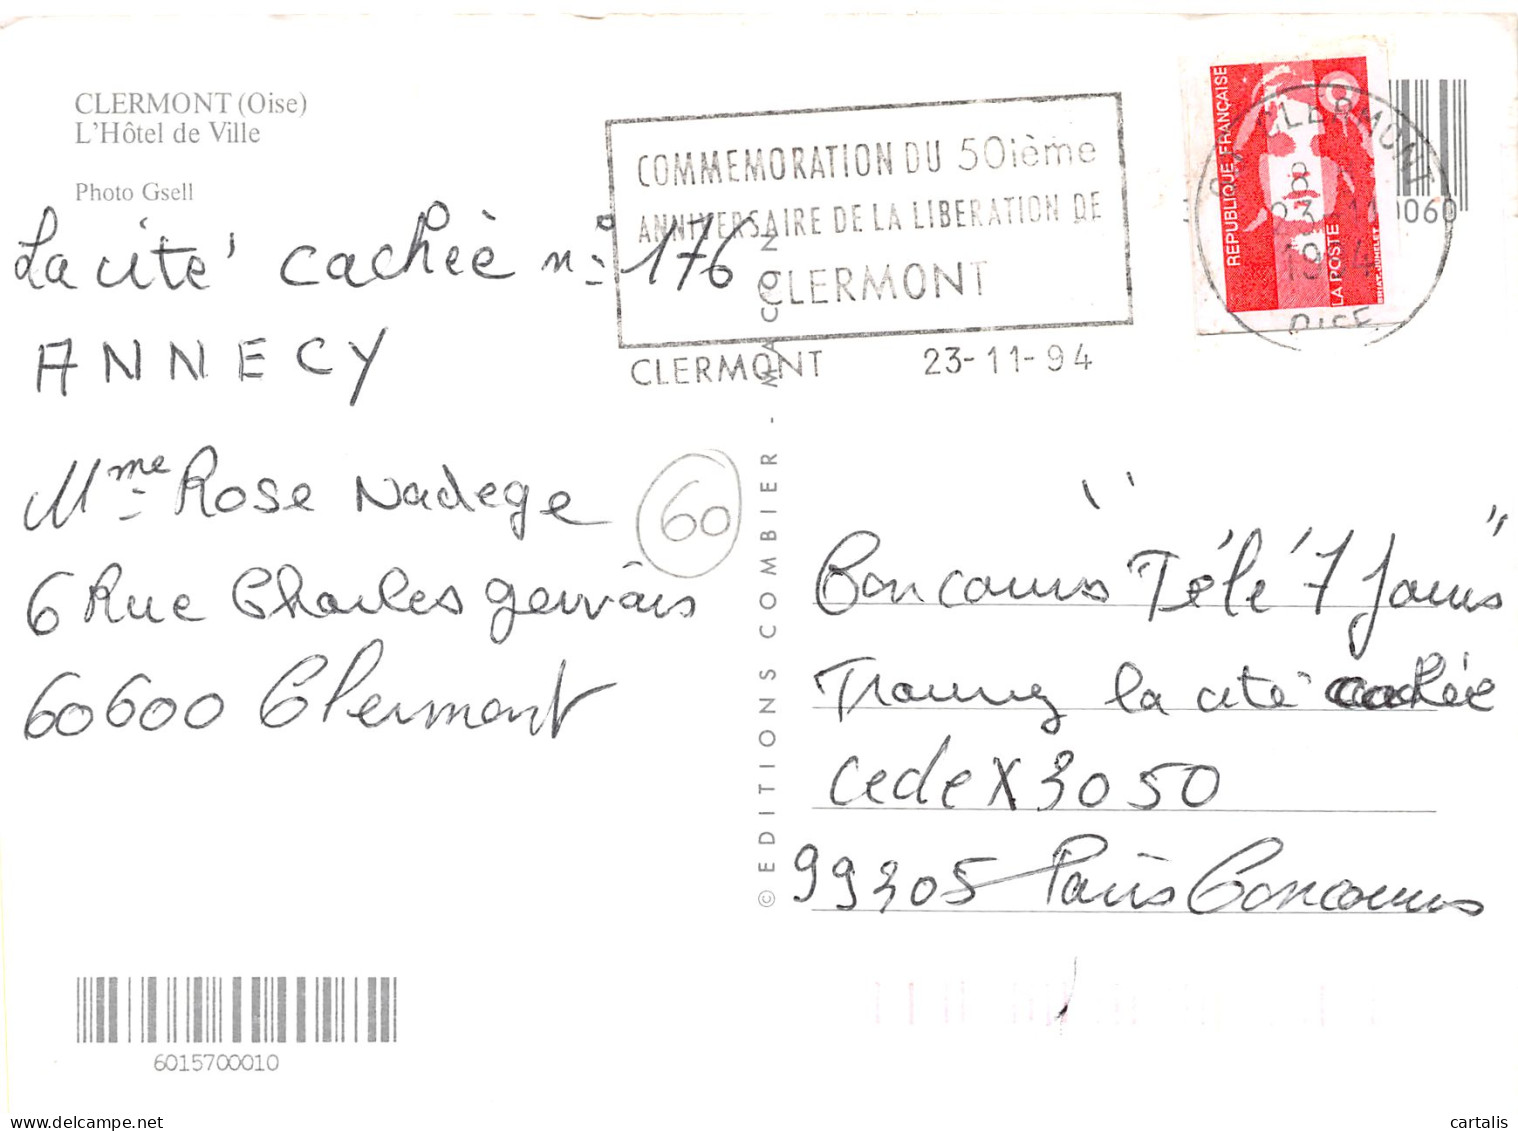 CLERMONT (Oise)
L'Hôtel de Ville
Photo Gsell
La cité cachée n° 176
ANNECY
Mme Rose Nadege
6 Rue Charles gervais
60600 Clermont
60
6015700010
© EDITIONS COMBIER - MACON
COMMEMORATION DU 50ième
ANNIVERSAIRE DE LA LIBERATION DE
CLERMONT
CLERMONT 23-11-94
REPUBLIQUE FRANÇAISE
LA POSTE
CLERMONT
23-11
1994
OISE
0060
Concours "Télé 7 Jours"
Trouvez la cité cachée
cedex 3050
99305 Paris Concours
cartalis